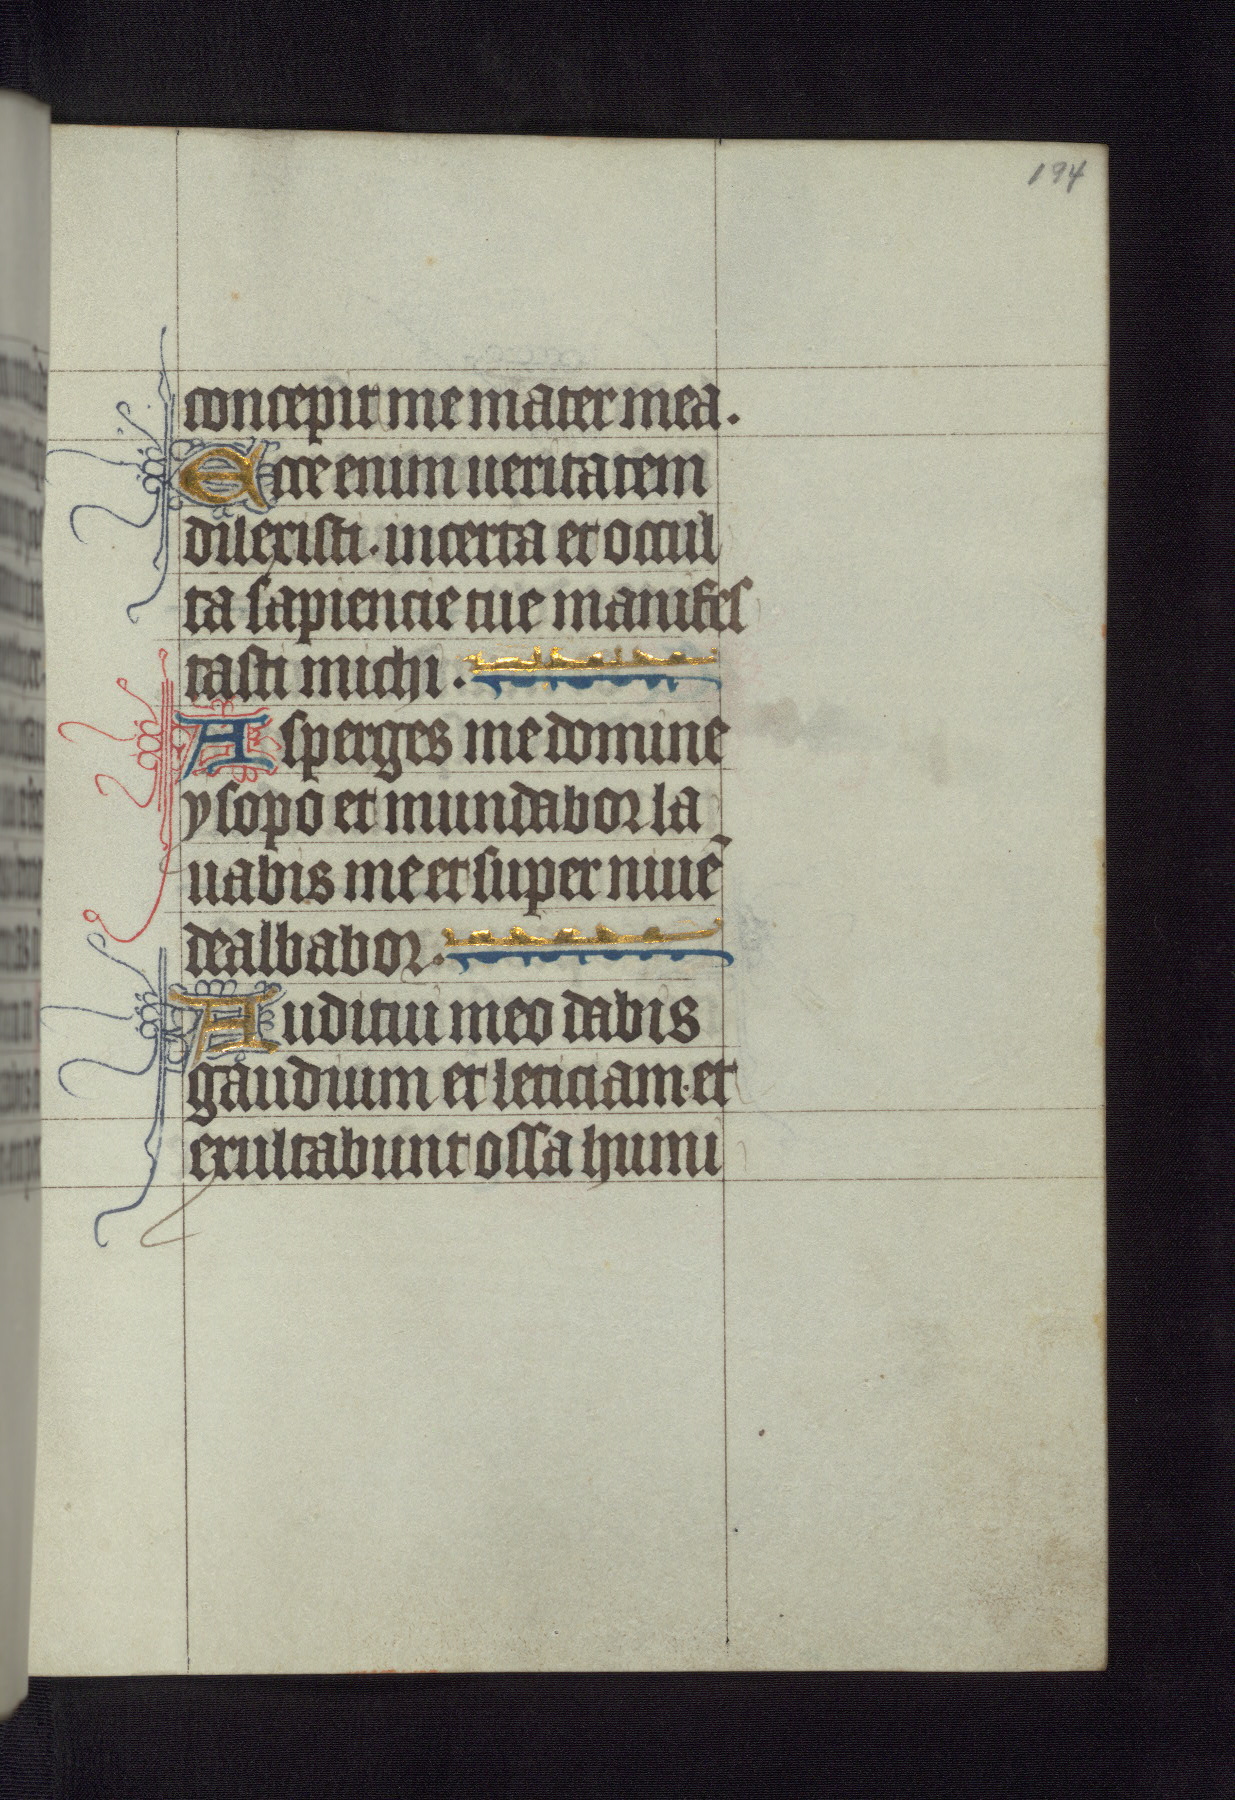 194
concepit me mater mea.
Ecce enim ueritatem
dilexisti. incerta et occul
ta sapiencie tue manifes
tasti michi.
Asperges me domine
ysopo et mundabor la
uabis me et super niuē
dealbabor.
Auditui meo dabis
gaudium et leticiam. et
exultabunt ossa humi